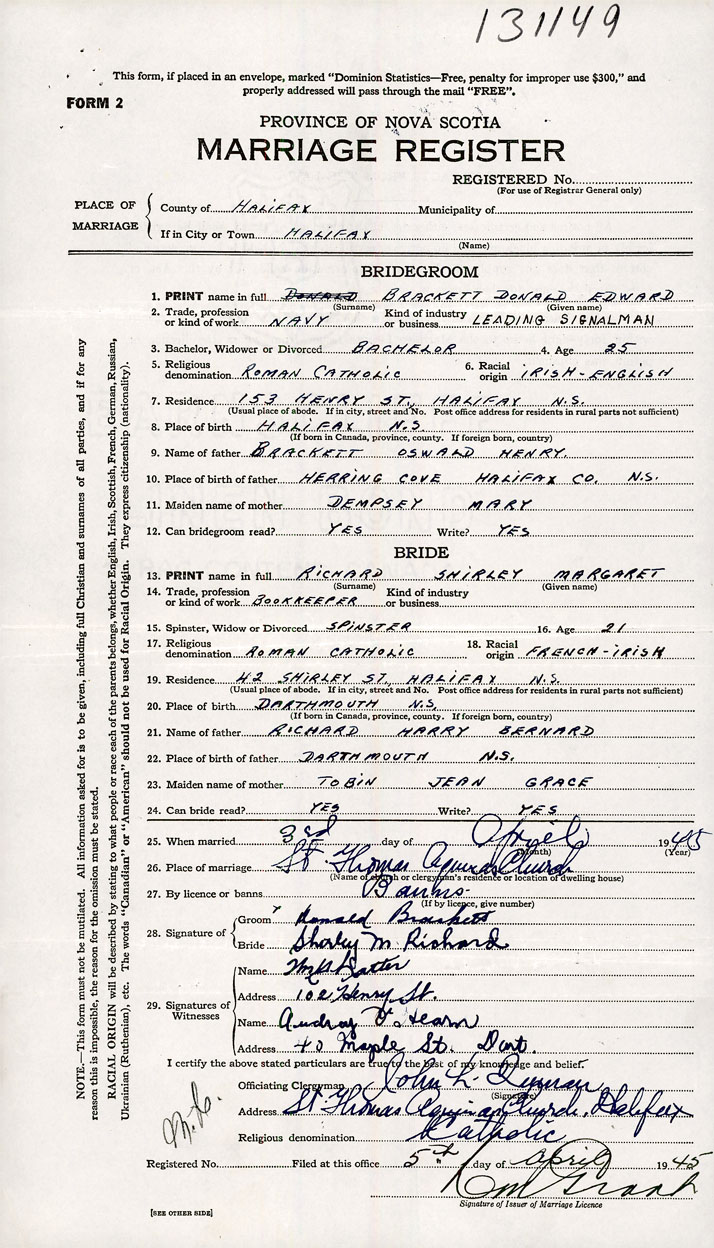 131149
This form, if placed in an envelope, marked “Dominion Statistics—Free, penalty for improper use $300,” and
properly addressed will pass through the mail “FREE”.
FORM 2
PROVINCE OF NOVA SCOTIA
MARRIAGE REGISTER
REGISTERED No.
(For use of Registrar General only)
PLACE OF MARRIAGE
County of HALIFAX Municipality of
If in City or Town HALIFAX
(Name)
BRIDEGROOM
1. PRINT name in full DONALD BRACKETT DONALD EDWARD
(Surname) (Given name)
2. Trade, profession or kind of work NAVY Kind of industry or business LEADING SIGNALMAN
3. Bachelor, Widower or Divorced BACHELOR 4. Age 25
5. Religious denomination ROMAN CATHOLIC 6. Racial origin IRISH-ENGLISH
7. Residence 153 HENRY ST, HALIFAX N.S.
(Usual place of abode. If in city, street and No. Post office address for residents in rural parts not sufficient)
8. Place of birth HALIFAX N.S.
(If born in Canada, province, county. If foreign born, country)
9. Name of father BRACKETT OSWALD HENRY.
10. Place of birth of father HERRING COVE HALIFAX CO. N.S.
11. Maiden name of mother DEMPSEY MARY
12. Can bridegroom read? YES Write? YES
BRIDE
13. PRINT name in full RICHARD SHIRLEY MARGARET
(Surname) (Given name)
14. Trade, profession or kind of work BOOKKEEPER Kind of industry or business
15. Spinster, Widow or Divorced SPINSTER 16. Age 21
17. Religious denomination ROMAN CATHOLIC 18. Racial origin FRENCH-IRISH
19. Residence 42 SHIRLEY ST, HALIFAX N.S.
(Usual place of abode. If in city, street and No. Post office address for residents in rural parts not sufficient)
20. Place of birth DARTMOUTH N.S.
(If born in Canada, province, county. If foreign born, country)
21. Name of father RICHARD HARRY BERNARD
22. Place of birth of father DARTMOUTH N.S.
23. Maiden name of mother TOBIN JEAN GRACE
24. Can bride read? YES Write? YES
25. When married 3rd day of April 1945
(Month) (Year)
26. Place of marriage St Thomas Aquinas Church
(Name of church or clergyman's residence or location of dwelling house)
27. By licence or banns Banns
(If by licence, give number)
28. Signature of
Groom Donald Brackett
Bride Shirley M Richard
29. Signatures of Witnesses
Name
Address 102 Henry St.
Name Audrey
Address 40 Maple St. Dart.
I certify the above stated particulars are true to the best of my knowledge and belief.
Officiating Clergyman John L.
(Signature)
Address St Thomas Aquinas Church, Halifax
Religious denomination Catholic
Registered No. Filed at this office 5th day of April 1945
Signature of Issuer of Marriage Licence
[SEE OTHER SIDE]
NOTE.—This form must not be mutilated. All information asked for is to be given, including full Christian and surnames of all parties, and if for any
reason this is impossible, the reason for the omission must be stated.
RACIAL ORIGIN will be described by stating to what people or race each of the parents belongs, whether English, Irish, Scottish, French, German, Russian,
Ukrainian (Ruthenian), etc. The words “Canadian” or “American” should not be used for Racial Origin. They express citizenship (nationality).